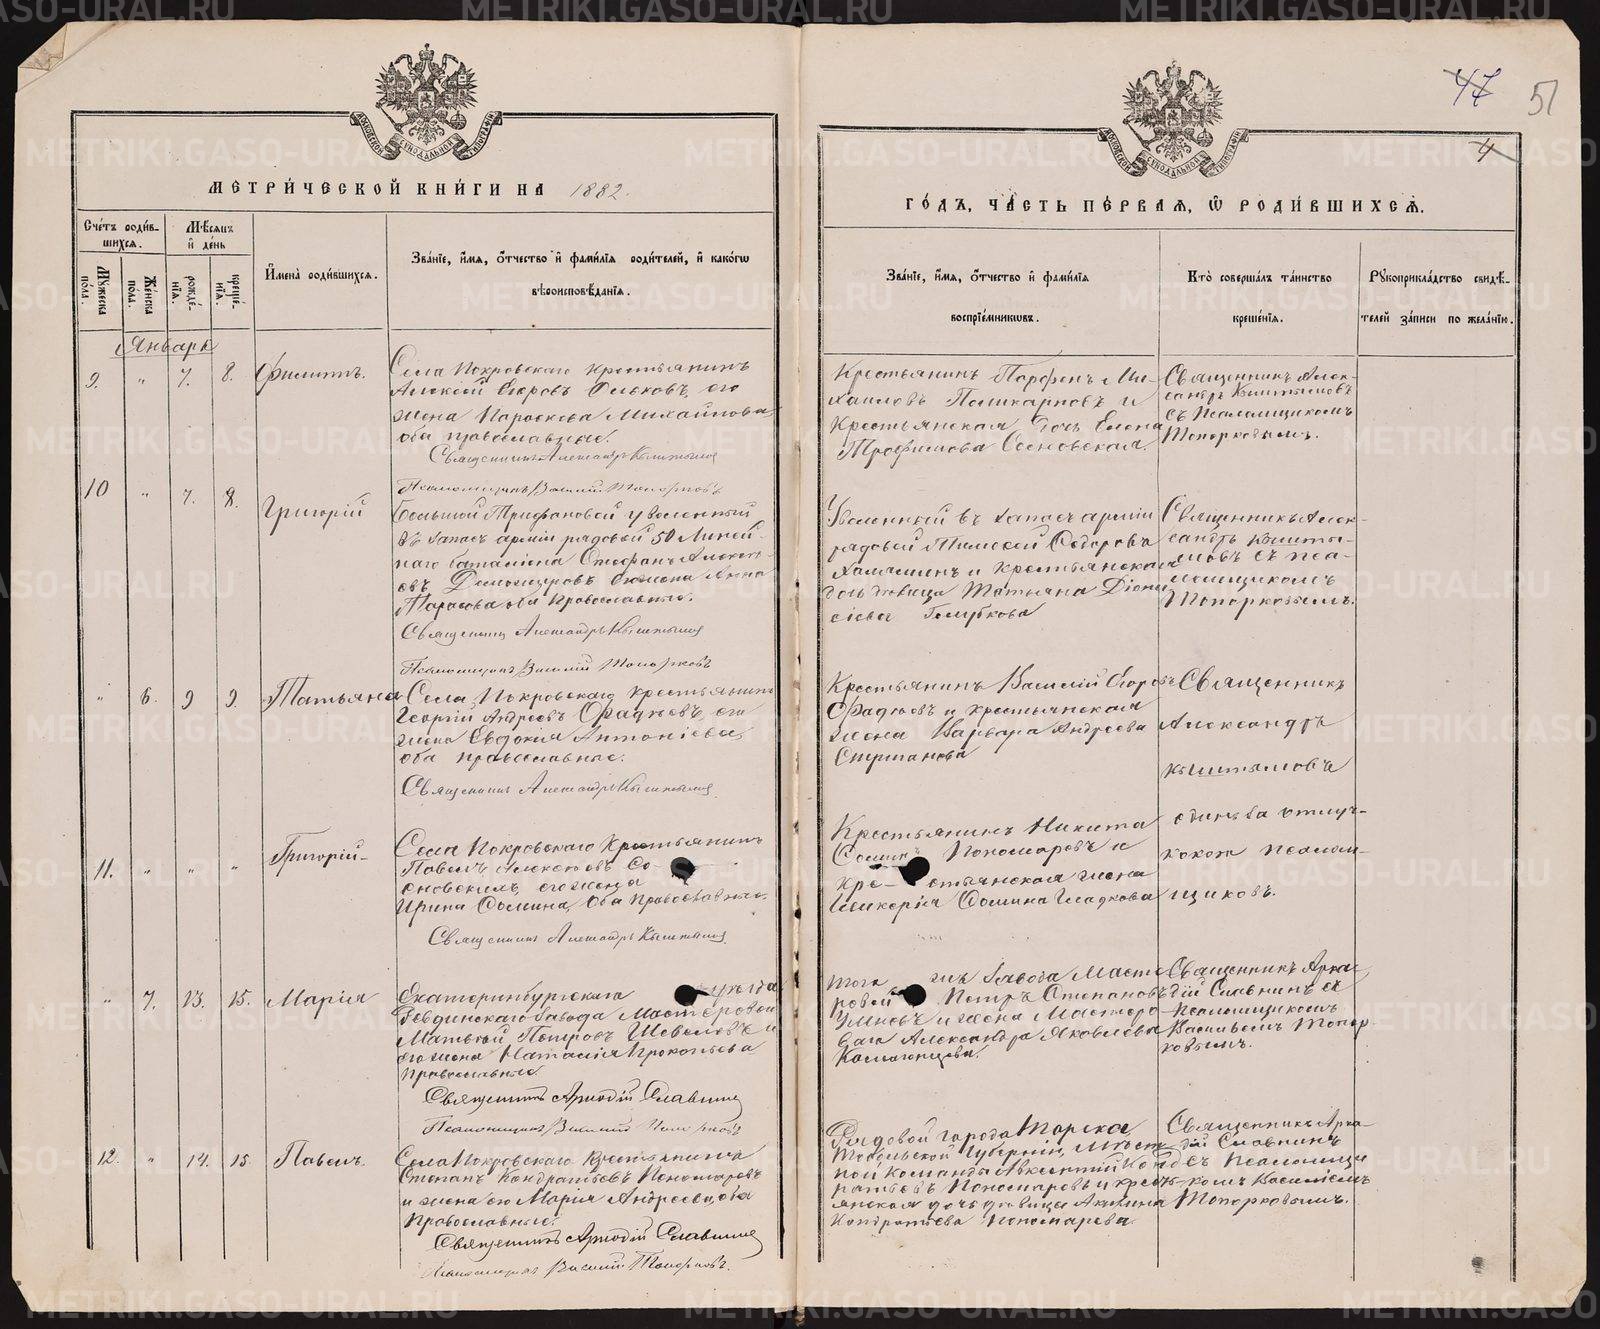 МЕТРИ́ЧЕСКОЙ КНИ́ГИ НА 1882.
Сче́тъ роди́в-
шихся.
Мѣ́сяцъ
и де́нь
Му́жеска
по́ла.
Же́нска
по́ла.
рожде́-
нїя.
креще́-
нїя.
И҆мена̀ роди́вшихся.
Зва́нїе, и҆́мя, ѻ҆́тчество и҆ фами́лїя роди́телей, и҆ како́гѡ
вѣроисповѣ́данїя.
Январь
9. " 7. 8. Филиппъ.
Села Покровскаго крестьянинъ
Алексей Егоровъ его
жена Параскева Михайлова
оба православные.
Священникъ Александръ Кыштымов
Псаломщикъ Василий Топорковъ
10 " 7. 8. Григорій
Большой Трифановой уволенный
въ запасъ арміи рядовой 50 Линей-
наго баталіона Стефанъ Алексе-
евъ его жена Анна
Тарасова оба Православные.
Священникъ Александръ Кыштымов
Псаломщикъ Василій Топорковъ
" 6. 9 9. Татьяна
Села Покровскаго крестьянинъ
Георгій Андреевъ его
жена Евдокія Антоніева
оба православные.
Священникъ Александръ Кыштымов
11. " " " Григорій
Села Покровскаго Крестьянинъ
Павелъ Алексѣевъ Со-
сновскихъ, его жена
Ирина Сомина, Оба Православные.
Священникъ Александръ Кыштымов
" 7. 13. 15. Марія
Екатеринбургскаго уѣзда
Ревдинскаго завода Мастеровой
Матвей Петровъ Шевелевъ и
его жена Наталія Прокопьева
Православные.
Священникъ Аркадій Славнинъ
Псаломщикъ Василій Топорковъ
12. " 14. 15. Павелъ.
Села Покровскаго Крестьянина
Степанъ Кондратьевъ Пономаревъ
и жена его Марія Андреева, оба
Православные.
Священникъ Аркадій Славнинъ
Псаломщикъ Василий Топорковъ.
47 51
4
ГО́ДЪ, ЧА́СТЬ ПЕ́РВАЯ, Ѽ РОДИ́ВШИХСЯ.
Зва́нїе, и҆́мя, ѻ҆́тчество и҆ фами́лїя
воспрїе́мникѡвъ.
Кто̀ соверша́лъ та́инство
креще́нїя.
Рꙋкоприкла́дство свидѣ́-
телей за́писи по жела́нїю.
Крестьянинъ Парфенъ Ми-
хаиловъ Поликарповъ и
Крестьянская Дочь Елена
Трофимова Сосновская.
Священникъ Алек-
сандръ Кыштымовъ
съ Псаломщикомъ
Топорковымъ.
Уволенный въ запасъ арміи
рядовой Тимофей Федоровъ
и крестьянская
дочь девица Татьяна Діони-
сіева Голубкова
Священникъ Алек-
сандръ Кышты-
мовъ съ Пса-
ломщикомъ
Топорковымъ.
Крестьянинъ Василій Егоровъ
и крестьянская
жена Варвара Андреева
Священникъ
Александръ
Кыштымовъ
Крестьянинъ Никита
Пономаревъ и
кре- стьянская жена
Гликерія Сомина Гладкова
одинъ за отлуч-
кою Псалом-
щиковъ.
завода Масте-
ровой Петръ Степановъ
и жена Мастеро-
ваго Александра Яковлева
Священникъ Арка-
дій Славнинъ съ
Псаломщикомъ
Васильемъ Топор-
ковымъ.
Рядовой города Тарска
Тобольской Губерніи, Мѣст-
ной Команды Авксентій Конд-
ратьевъ Пономаревъ и крест-
янская дочь девица Акилина
Кондратьева Пономарева.
Священникъ Арка-
дій Славнинъ
съ Псаломщи-
комъ Василіемъ
Топорковымъ.
METRIKI.GASO-URAL.RU